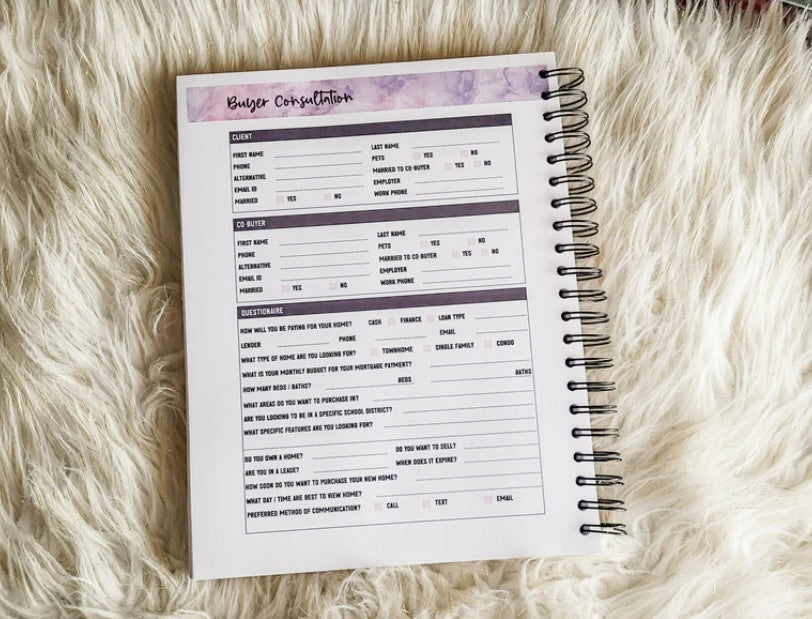 Buyer Consultation
CLIENT
FIRST NAME LAST NAME
PHONE PETS YES NO
ALTERNATIVE MARRIED TO CO-BUYER YES NO
EMAIL ID EMPLOYER
MARRIED YES NO WORK PHONE
CO-BUYER
FIRST NAME LAST NAME
PHONE PETS YES NO
ALTERNATIVE MARRIED TO CO-BUYER YES NO
EMAIL ID EMPLOYER
MARRIED YES NO WORK PHONE
QUESTIONAIRE
HOW WILL YOU BE PAYING FOR YOUR HOME? CASH FINANCE LOAN TYPE
LENDER PHONE EMAIL
WHAT TYPE OF HOME ARE YOU LOOKING FOR? TOWNHOME SINGLE FAMILY CONDO
WHAT IS YOUR MONTHLY BUDGET FOR YOUR MORTGAGE PAYMENT?
HOW MANY BEDS / BATHS? BEDS BATHS
WHAT AREAS DO YOU WANT TO PURCHASE IN?
ARE YOU LOOKING TO BE IN A SPECIFIC SCHOOL DISTRICT?
WHAT SPECIFIC FEATURES ARE YOU LOOKING FOR?
DO YOU OWN A HOME? DO YOU WANT TO SELL?
ARE YOU IN A LEASE? WHEN DOES IT EXPIRE?
HOW SOON DO YOU WANT TO PURCHASE YOUR NEW HOME?
WHAT DAY / TIME ARE BEST TO VIEW HOME?
PREFERRED METHOD OF COMMUNICATION? CALL TEXT EMAIL